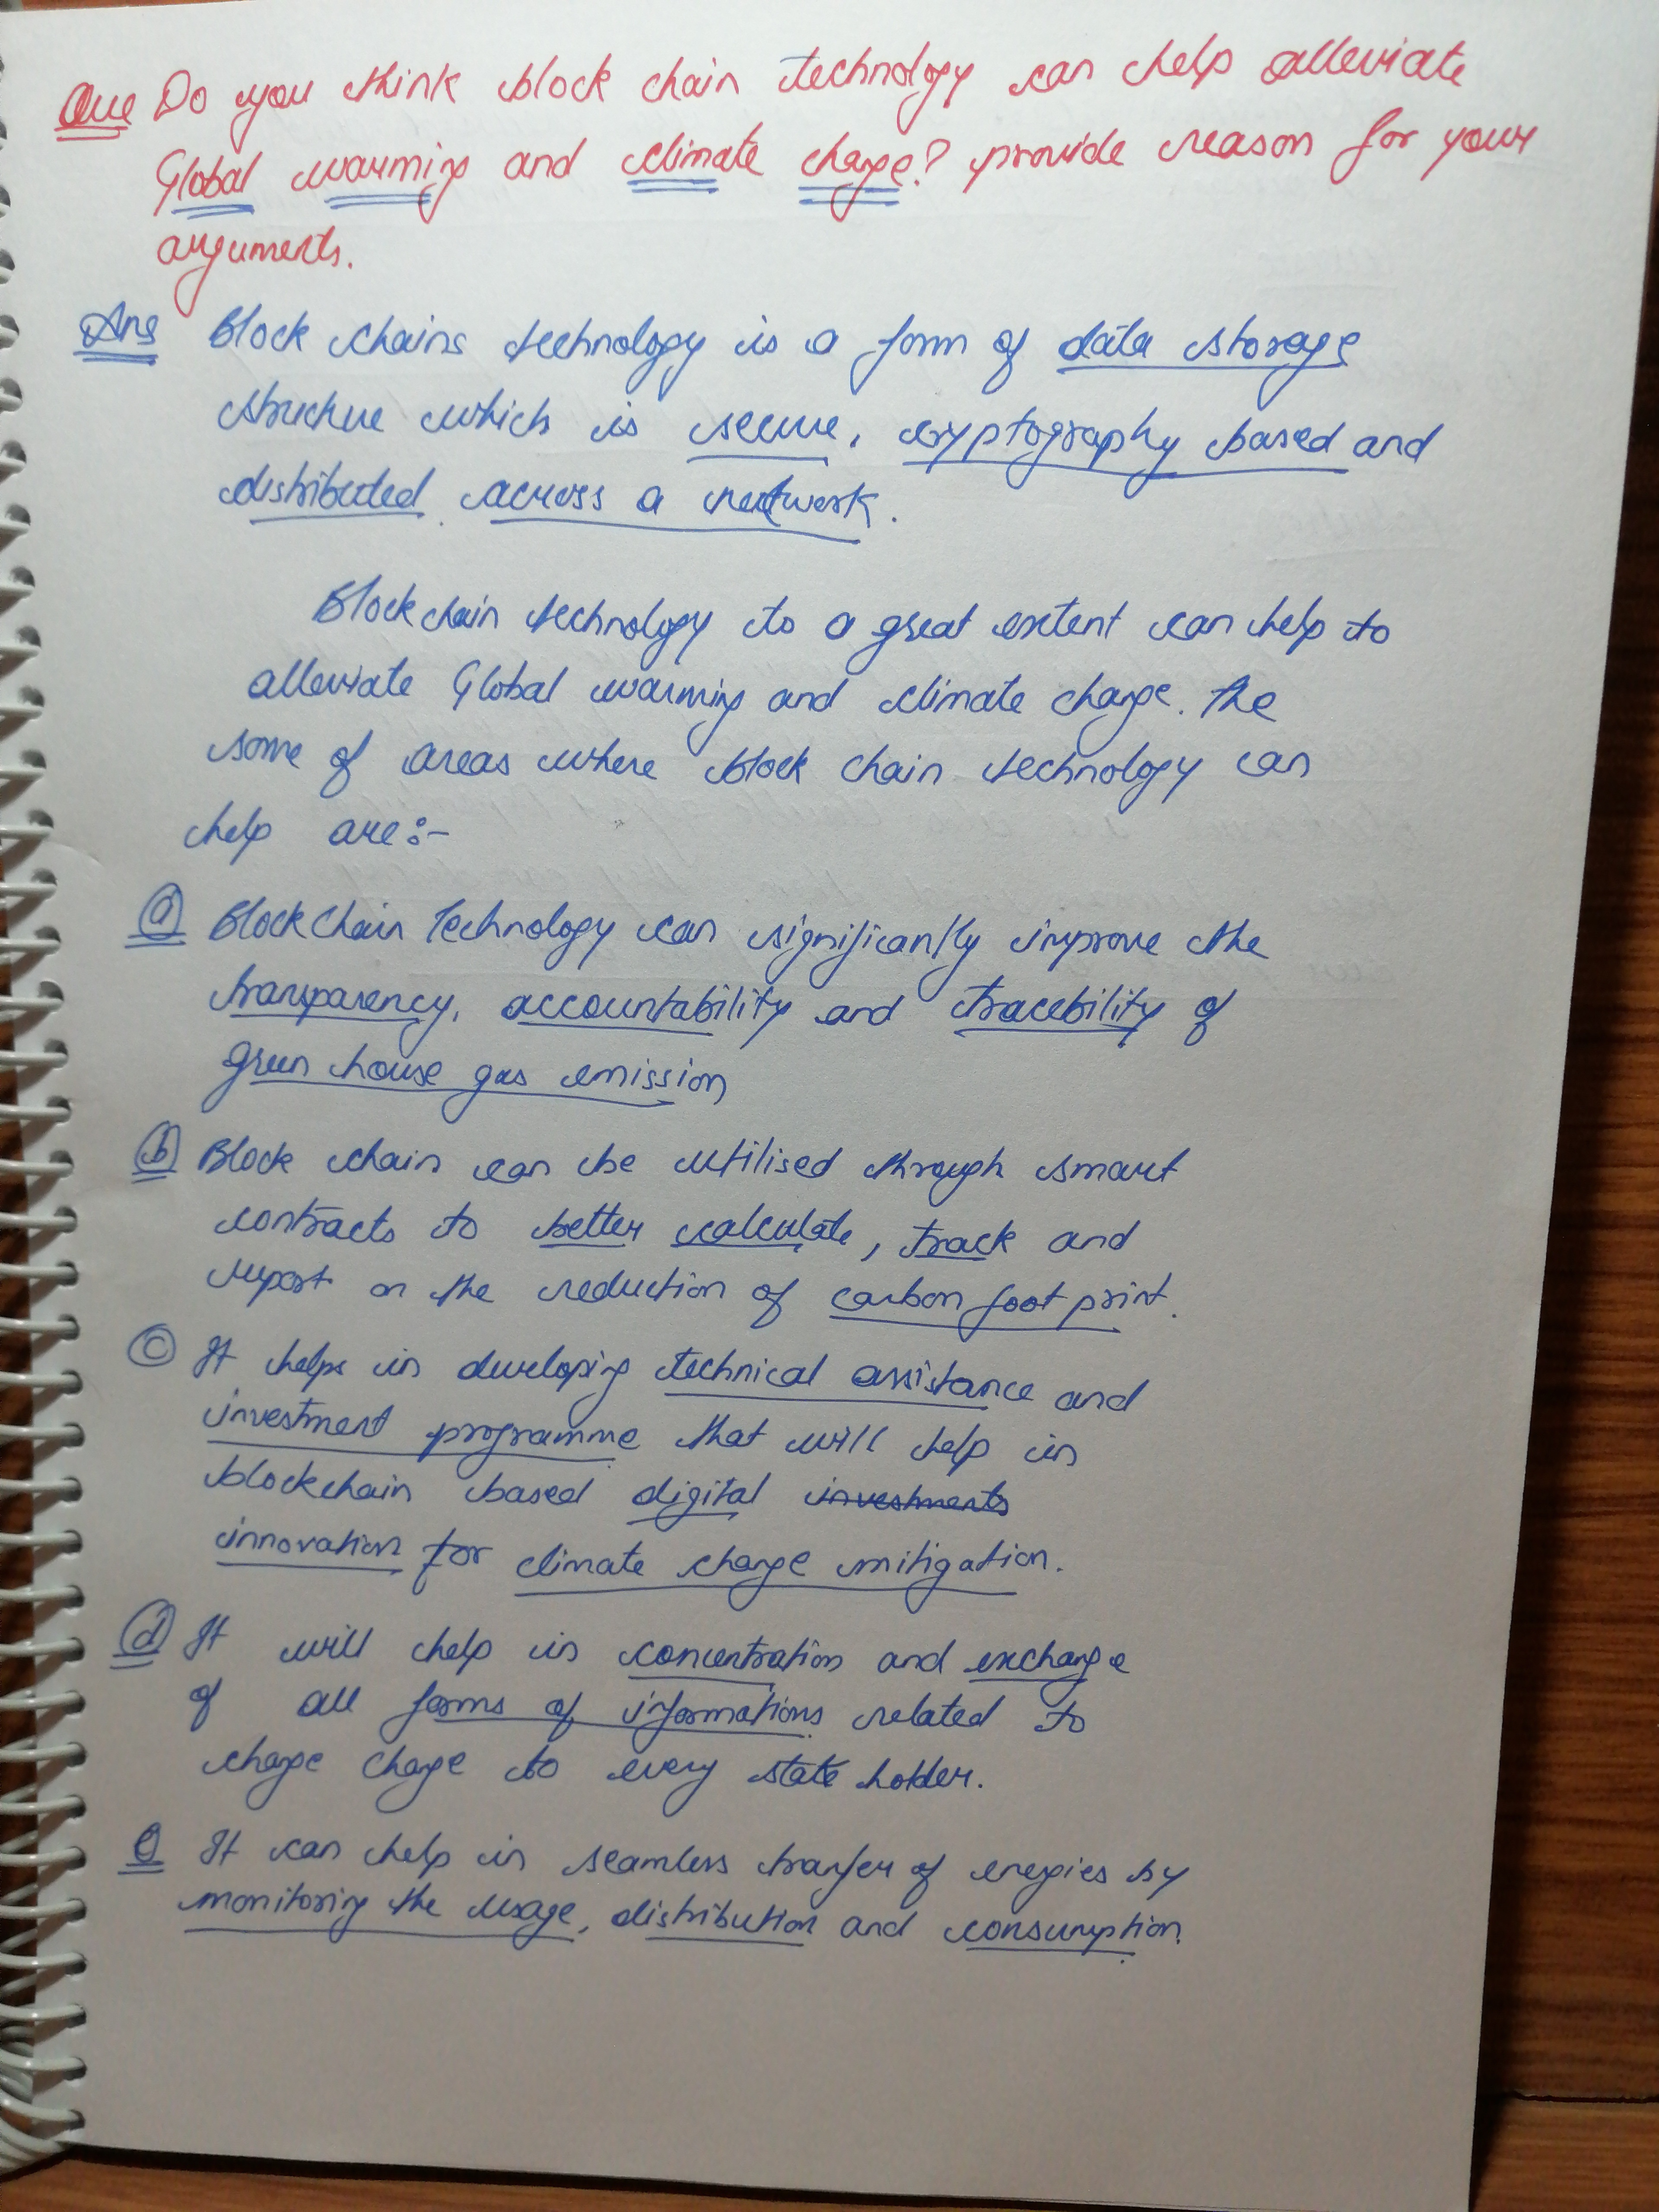 Que Do you think block chain technology can help alleviate
Global warming and climate change? provide reason for your
arguments.
Ans Block chains technology is a form of data storage
structure which is secure, cryptography based and
distributed across a network.
Blockchain technology to a great extent can help to
alleviate Global warming and climate change. The
some of areas where block chain technology can
help are:-
(a) Blockchain Technology can significantly improve the
transparency, accountability and tracebility of
green house gas emission
(b) Block chain can be utilised through smart
contracts to better calculate, track and
report on the reduction of carbon foot print.
(c) It helps in developing technical assistance and
investment programme that will help in
blockchain based digital investments
innovation for climate change mitigation.
(d) It will help in concentration and exchange
of all forms of informations related to
change change to every state holder.
e It can help in seamless transfer of energies by
monitoring the usage, distribution and consumption.